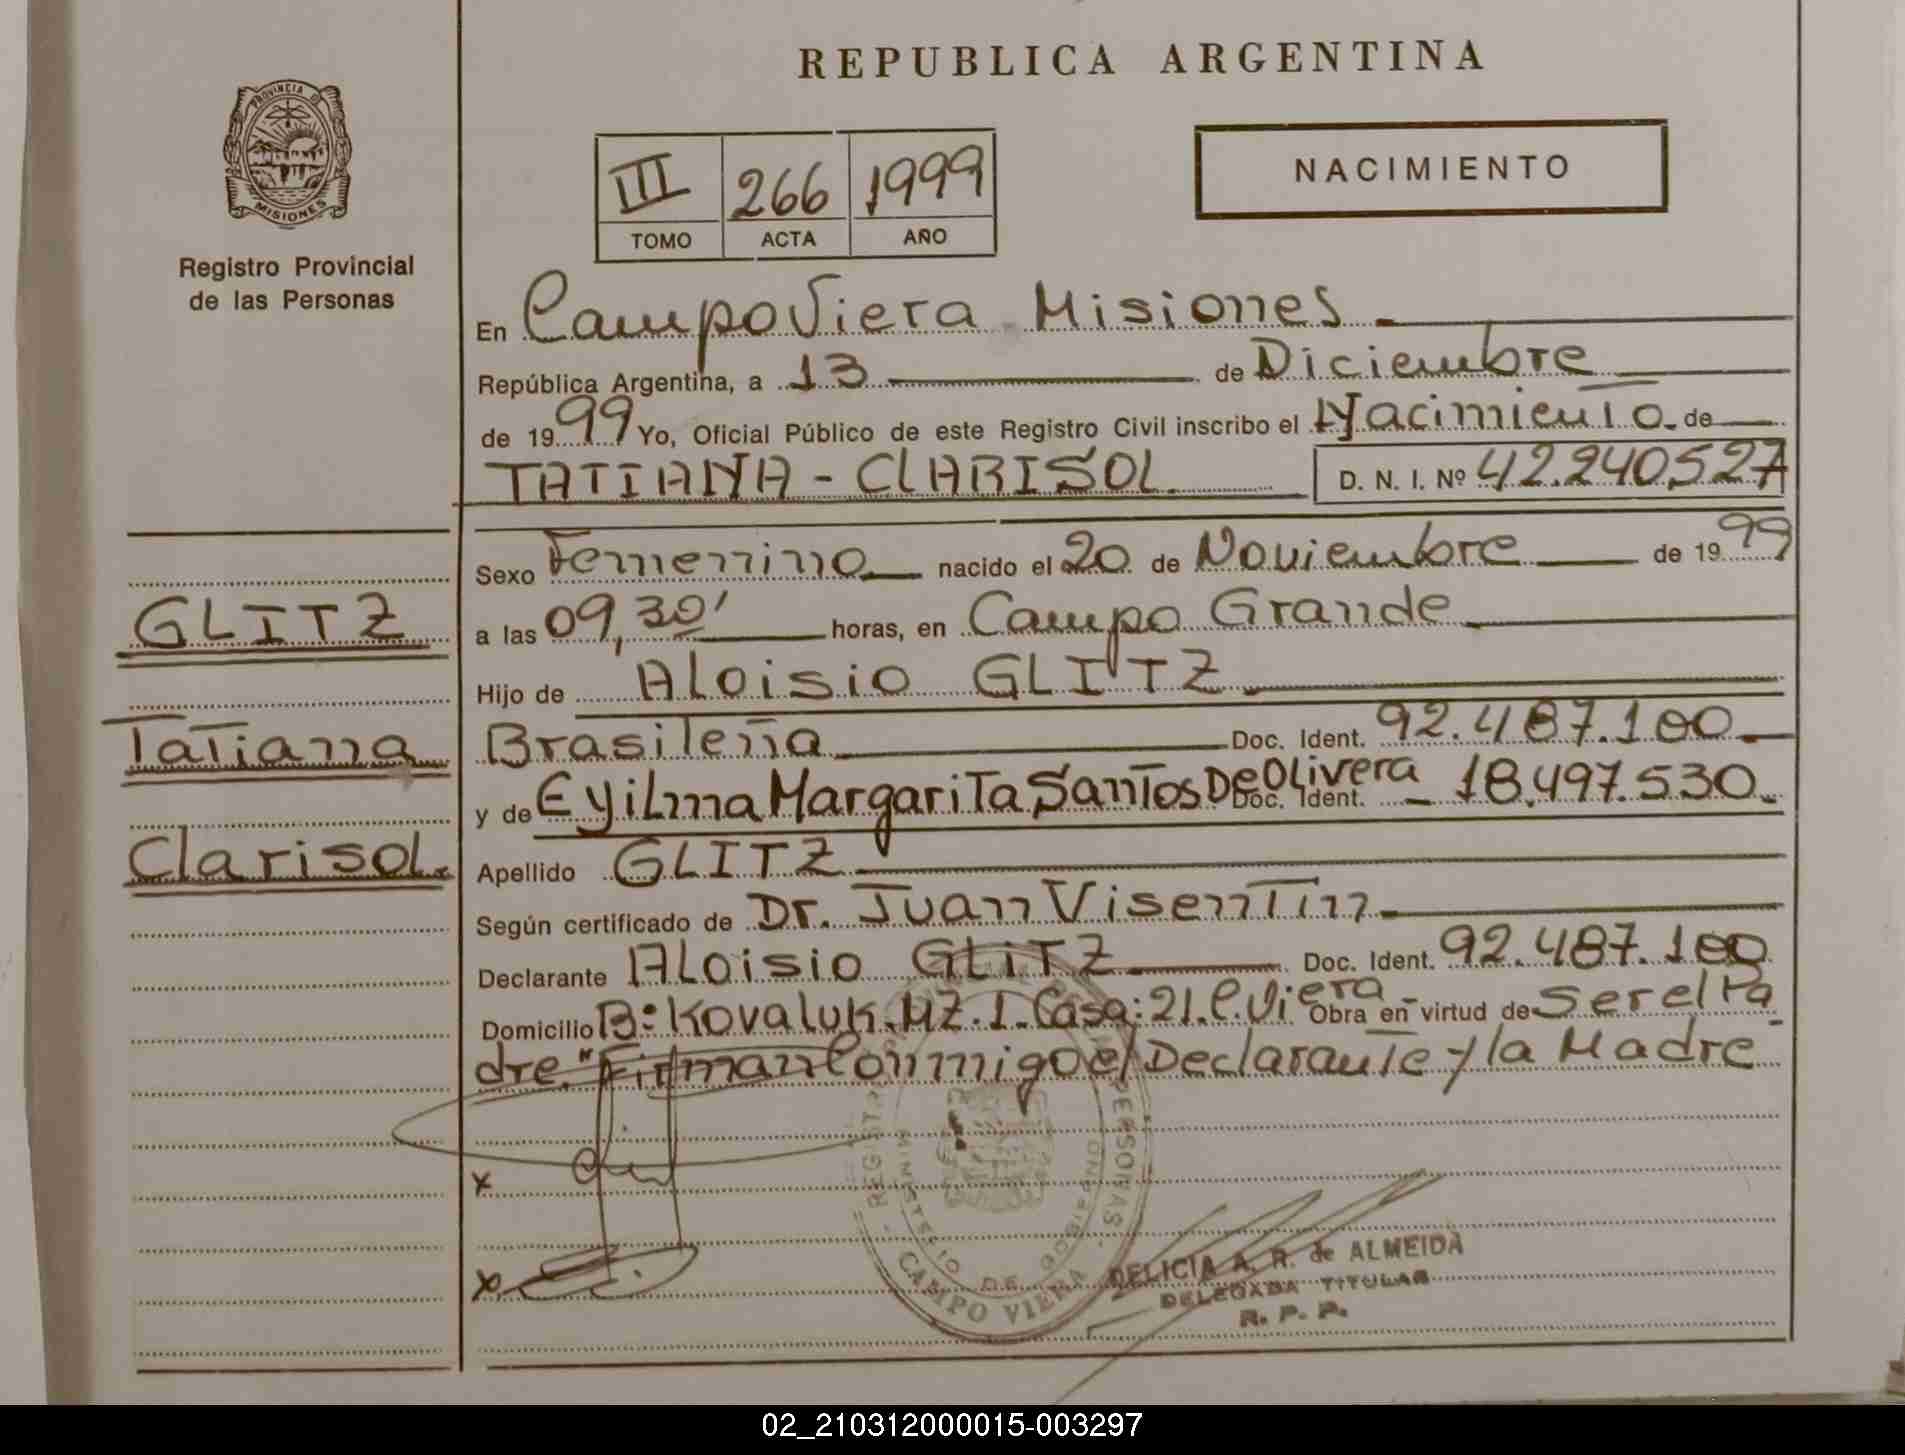 REPUBLICA ARGENTINA
PROVINCIA DE
MISIONES
Registro Provincial
de las Personas
NACIMIENTO
III 266 1999
TOMO ACTA AÑO
En Campo Viera Misiones
República Argentina, a 13 de Diciembre
de 1999 Yo, Oficial Público de este Registro Civil inscribo el Nacimiento de
TATIANA - CLARISOL D. N. I. Nº 42.240.527
Sexo Femenino nacido el 20 de Noviembre de 1999
GLITZ
a las 09,30' horas, en Campo Grande
Hijo de Aloisio GLITZ
Tatiana
Brasileña Doc. Ident. 92.487.100
y de Eyilma Margarita Santos De Olivera Doc. Ident. 18.497.530
Clarisol
Apellido GLITZ
Según certificado de Dr. Juan Visentin
Declarante Aloisio GLITZ Doc. Ident. 92.487.100
Domicilio Bº: Kovaluk. MZ. 1. Casa: 21. C. Viera Obra en virtud de ser el Pa
dre." Firman Conmigo el Declarante y la Madre
REGISTRO PERSONAS
MINISTERIO DE GOBIERNO
CAMPO VIERA
DELICIA A. R. de ALMEIDA
DELEGADA TITULAR
R. P. P.
02_210312000015-003297